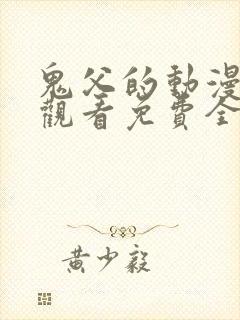 鬼父的動漫
觀看免費全
黃少毅